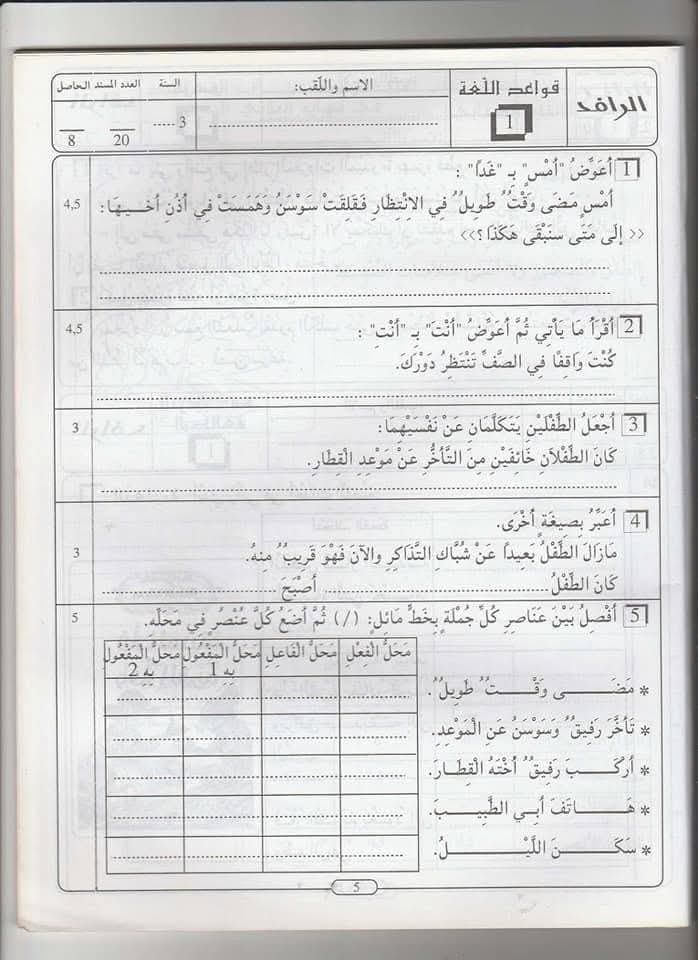 الرافد
قواعد اللّغة
1
الاسم واللّقب:
السنة
3
العدد المسند
20
الحاصل
8
1 أُعَوِّضُ "أَمْسِ" بِـ "غَدًا" :
أَمْسِ مَضَى وَقْتٌ طَوِيلٌ فِي الاِنْتِظَارِ فَقَلِقَتْ سَوْسَنُ وَهَمَسَتْ فِي أُذُنِ أَخِيهَا:
<< إِلَى مَتَى سَنَبْقَى هَكَذَا؟>>
4,5
2 أَقْرَأُ مَا يَأْتِي ثُمَّ أُعَوِّضُ "أَنْتَ" بِـ "أَنْتِ" :
كُنْتَ وَاقِفًا فِي الصَّفِّ تَنْتَظِرُ دَوْرَكَ.
4,5
3 أَجْعَلُ الطِّفْلَيْنِ يَتَكَلَّمَانِ عَنْ نَفْسَيْهِمَا:
كَانَ الطِّفْلاَنِ خَائِفَيْنِ مِنَ التَّأَخُّرِ عَنْ مَوْعِدِ الْقِطَارِ.
3
4 أُعَبِّرُ بِصِيغَةٍ أُخْرَى.
مَازَالَ الطِّفْلُ بَعِيداً عَنْ شُبَّاكِ التَّذَاكِرِ والآنَ فَهْوَ قَرِيبٌ مِنهُ.
كَانَ الطِّفْلُ أَصْبَحَ
3
5 أَفْصِلُ بَيْنَ عَنَاصِرِ كُلِّ جُمْلَةٍ بِخَطٍّ مَائِلٍ: (/) ثُمَّ أَضَعُ كُلَّ عُنْصُرٍ فِي مَحَلِّهِ.
5
مَحَلُّ الْفِعْلِ
مَحَلُّ الْفَاعِلِ
مَحَلُّ الْمَفْعُولِ
بِهِ 1
مَحَلُّ الْمَفْعُولِ
بِهِ 2
* مَضَى وَقْتٌ طَوِيلٌ.
* تَأَخَّرَ رَفِيقٌ وَسَوْسَنُ عَنِ الْمَوْعِدِ.
* أَرْكَبَ رَفِيقٌ أُخْتَهُ الْقِطَارَ.
* هَاتَفَ أَبِي الطَّبِيبَ.
* سَكَنَ اللَّيْلُ.
5